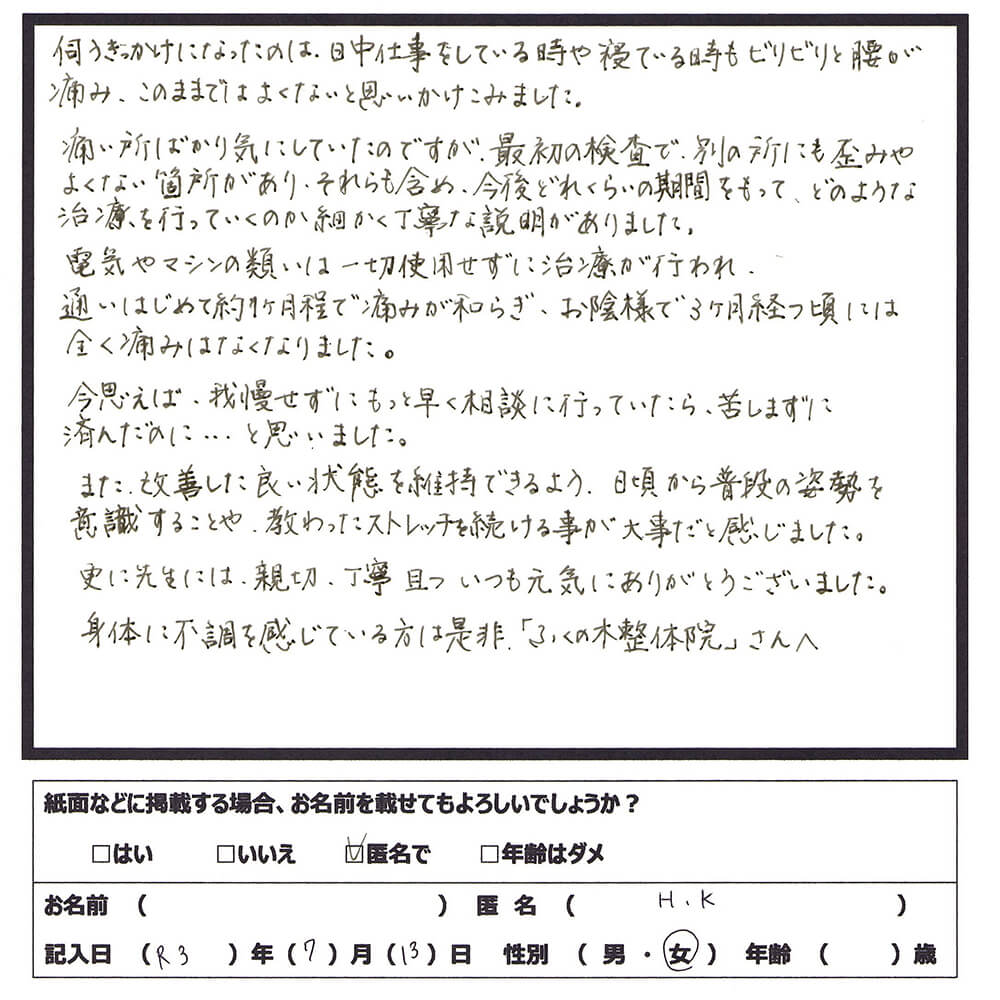 伺うきっかけになったのは、日中仕事をしている時や寝ている時もビリビリと腰が
痛み、このままではよくないと思いかけこみました。
痛い所ばかり気にしていたのですが、最初の検査で、別の所にも歪みや
よくない箇所があり、それらも含め、今後どれくらいの期間をもって、どのような
治療を行っていくのか細かく丁寧な説明がありました。
電気やマシンの類いは一切使用せずに治療が行われ、
通いはじめて約1ヶ月程で痛みが和らぎ、お陰様で3ヶ月経つ頃には
全く痛みはなくなりました。
今思えば、我慢せずにもっと早く相談に行っていたら、苦しまずに
済んだのに…と思いました。
また、改善した良い状態を維持できるよう、日頃から普段の姿勢を
意識することや、教わったストレッチを続ける事が大事だと感じました。
更に先生には、親切、丁寧且ついつも元気にありがとうございました。
身体に不調を感じている方は是非、「ふくの木整体院」さんへ
紙面などに掲載する場合、お名前を載せてもよろしいでしょうか？
□はい □いいえ ☑匿名で □年齢はダメ
お名前 （ ） 匿名 （ H.K ）
記入日 （R3 ）年（7）月（13）日 性別 （ 男 ・ 女 ） 年齢 （ ）歳